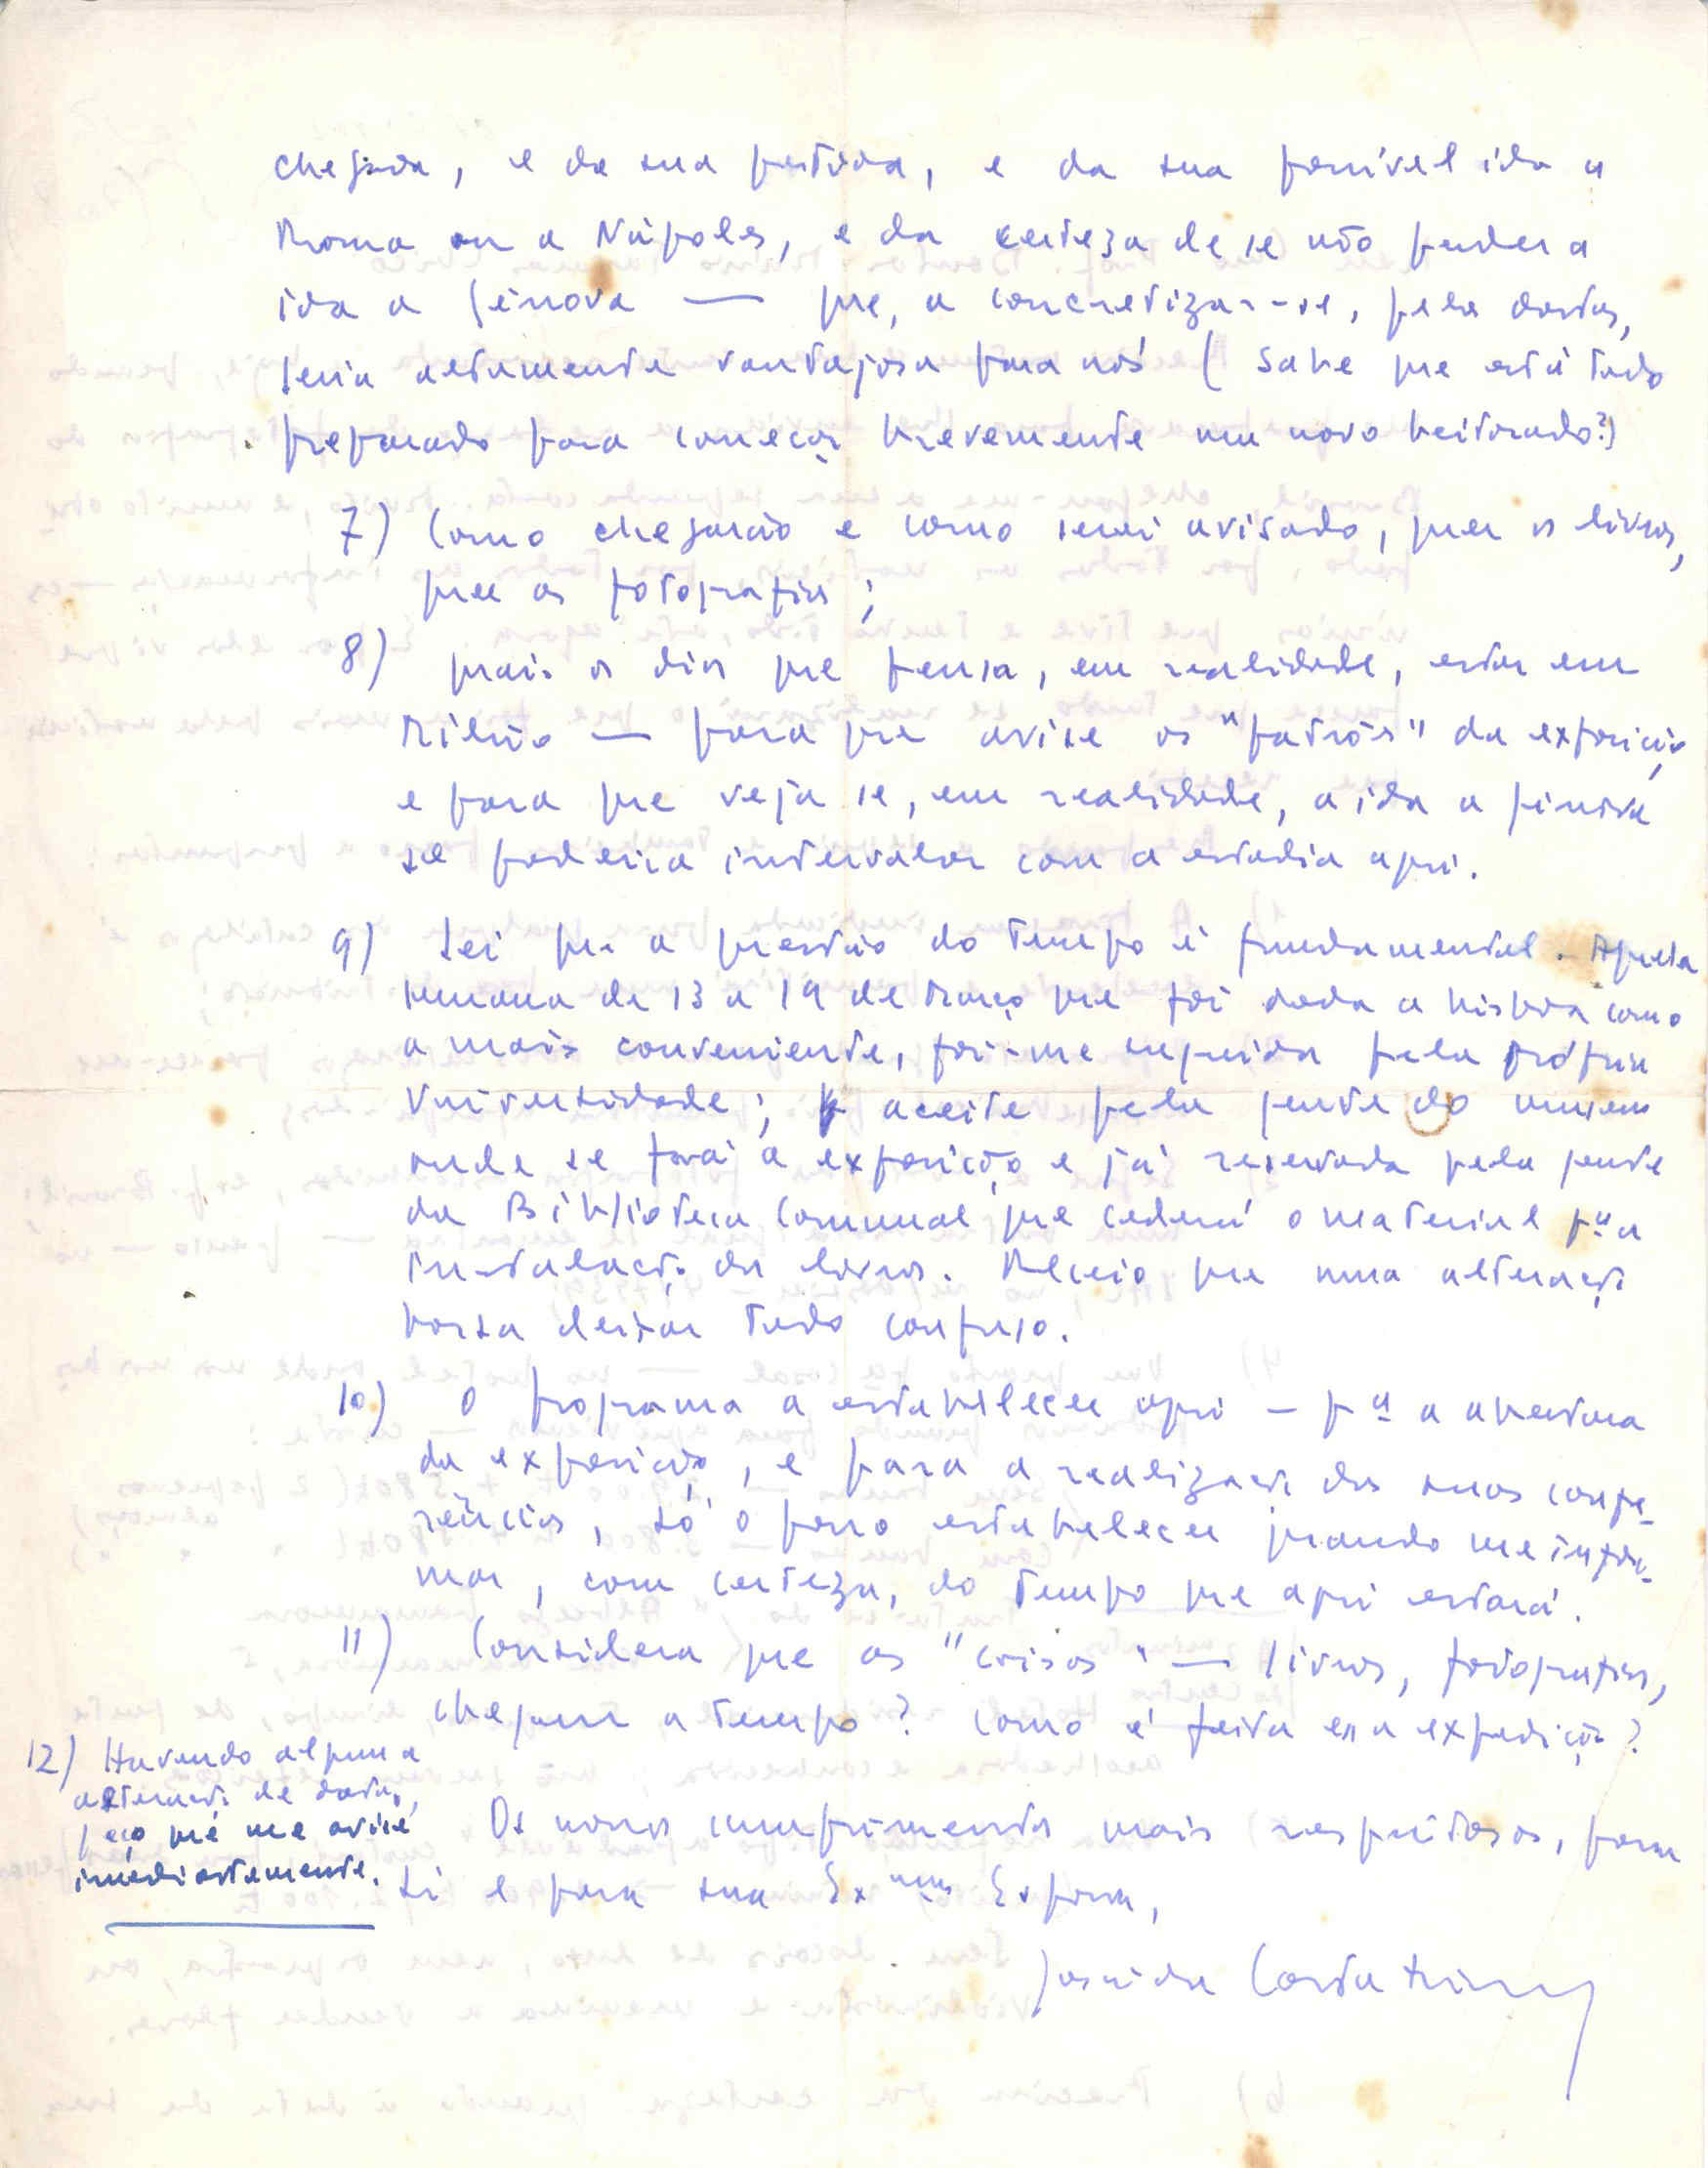 chegada, e da sua partida, e da sua possível ida a
Roma ou a Nápoles, e da certeza de se não perder a
ida a Génova — que, a concretizar-se, pelas datas,
seria altamente vantajosa para nós (sabe que está tudo
preparado para começar brevemente um novo leitorado?)
7) Como chegarão e como serei avisado, quer os livros,
quer as fotografias;
8) quais os dias que pensa, em realidade, estar em
Milão — para que avise os "patrões" da exposição
e para que veja se, em realidade, a ida a Génova
se poderia intervalar com a estadia aqui.
9) Sei que a questão do tempo é fundamental. Aquela
semana de 13 a 19 de Março que foi dada a Lisboa como
a mais conveniente, foi-me sugerida pela própria
Universidade; aceite pela gente do museu
onde se fará a exposição e já reservada pela gente
da Biblioteca Comunal que cederá o material pª a
instalação dos livros. Receio que uma alteração
possa deixar tudo confuso.
10) O programa a estabelecer aqui – pª a abertura
da exposição, e para a realização das suas confe-
rências, só o posso estabelecer quando me infor-
mar, com certeza, do tempo que aqui estará.
11) Considera que as "coisas" — livros, fotografias,
chegam a tempo? Como é feita essa expedição?
12) Havendo alguma
alteração de datas,
peço que me avise
imediatamente.
Os nossos cumprimentos mais respeitosos, para
si e para sua Exma Esposa,